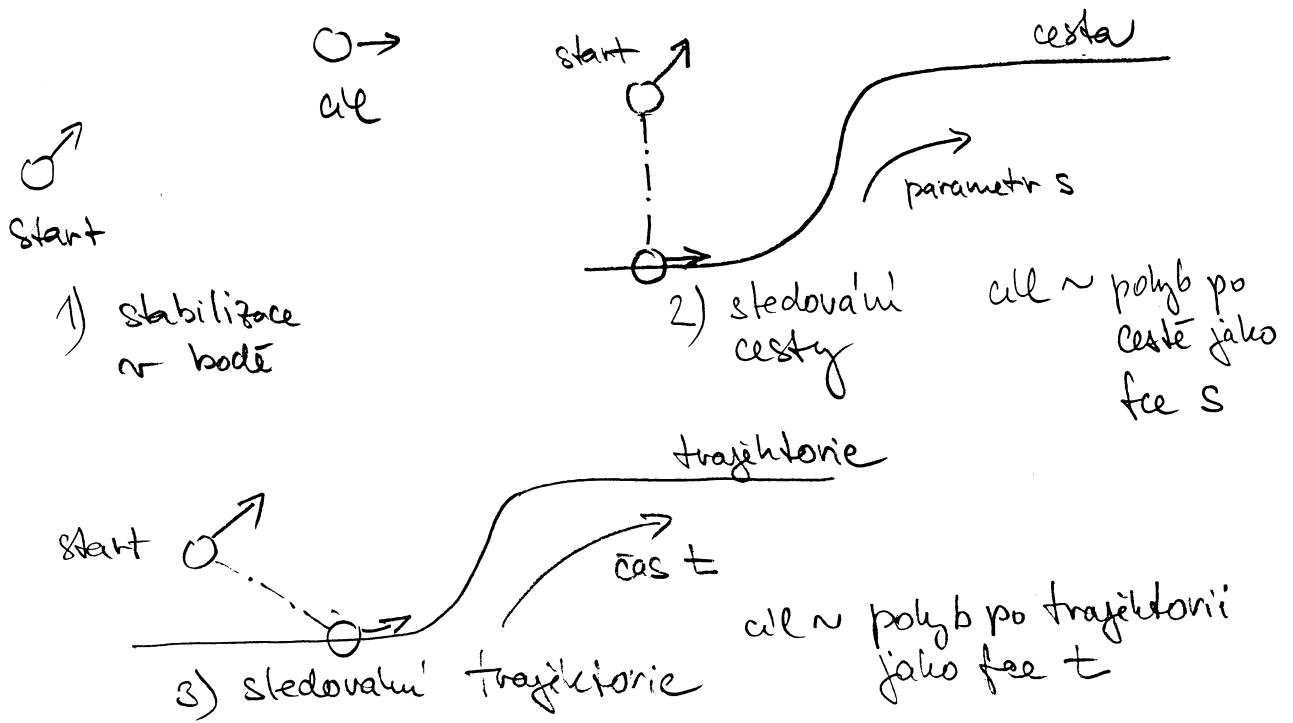 cíl
start
1) stabilizace
v bodě
start
cesta
parametr s
2) sledování
cesty
cíl ~ pohyb po
cestě jako
fce s
trajektorie
start
čas t
3) sledování trajektorie
cíl ~ pohyb po trajektorii
jako fce t